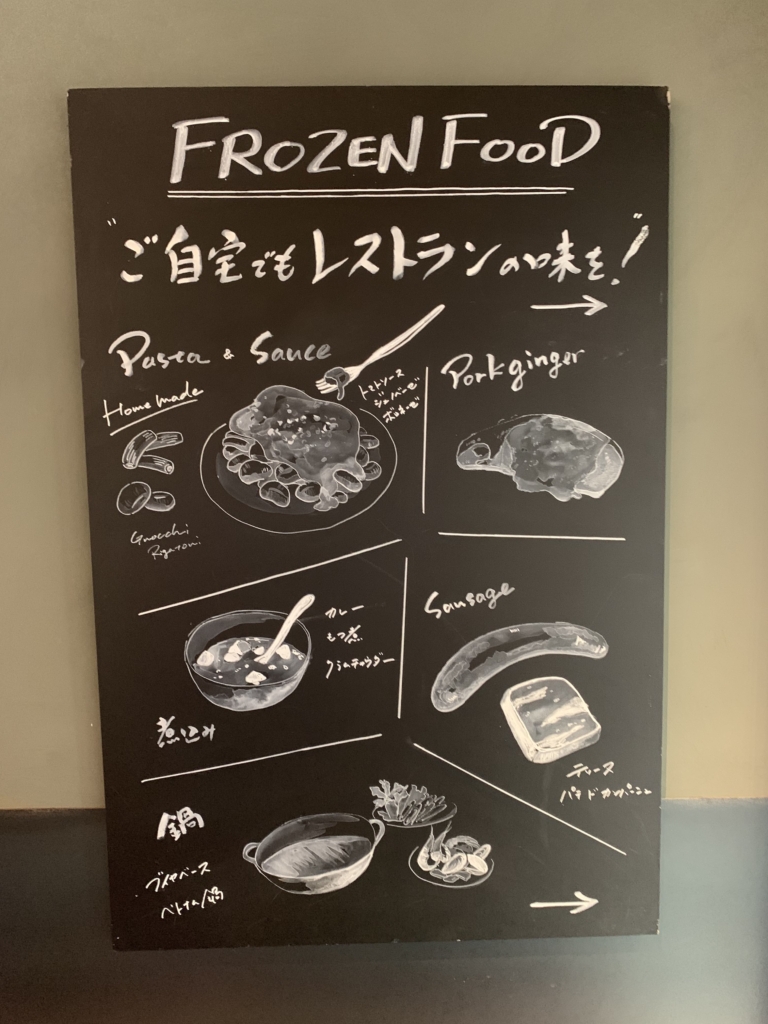 FROZEN FOOD
"ご自宅でもレストランの味を!"
Pasta & Sauce
Home made
トマトソース
ジェノベーゼ
ボロネーゼ
Gnocchi
Rigatoni
Pork ginger
カレー
もつ煮
クラムチャウダー
煮込み
Sausage
テリーヌ
パテドカンパーニュ
鍋
ブイヤベース
ベトナム鍋